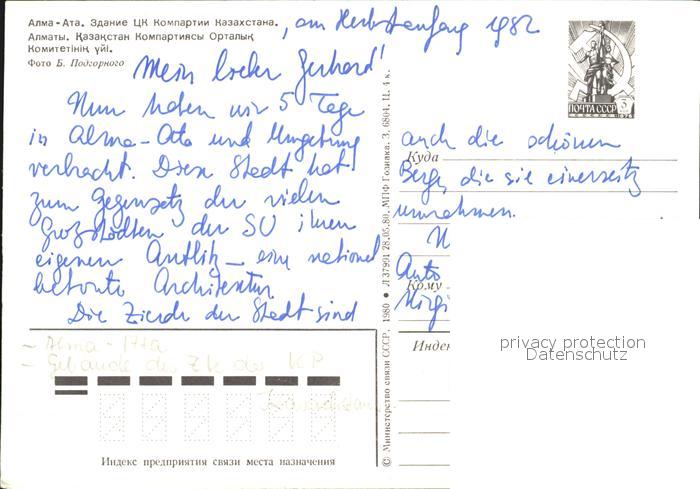 Алма-Ата. Здание ЦК Компартии Казахстана.
Алматы. Қазақстан Компартиясы Орталық
Комитетінің үйі.
Фото Б. Подгорного
, am Herbstanfang 1982
Mein lieber Gerhard!
Nun haben wir 5 Tage
in Alma-Ata und Umgebung
verbracht. Diese Stadt hat
zum Gegensatz der vielen
Großstädten der SU ihren
eigenen Antlitz – eine national
betonte Architektur
Die Zierde der Stadt sind
auch die schönen
Berge, die sie einerseits
umrahmen.
N
Auto
Kirgi
Куда
Кому
Индек
ПОЧТА СССР
3
1976
– Alma-Ata
– Gebäude des ZK der KP
Kasachstan.
Индекс предприятия связи места назначения
© Министерство связи СССР, 1980 • Л 37991 28.05.80. МПФ Гознака. З. 6804. Ц. 4 к.
privacy protection
Datenschutz